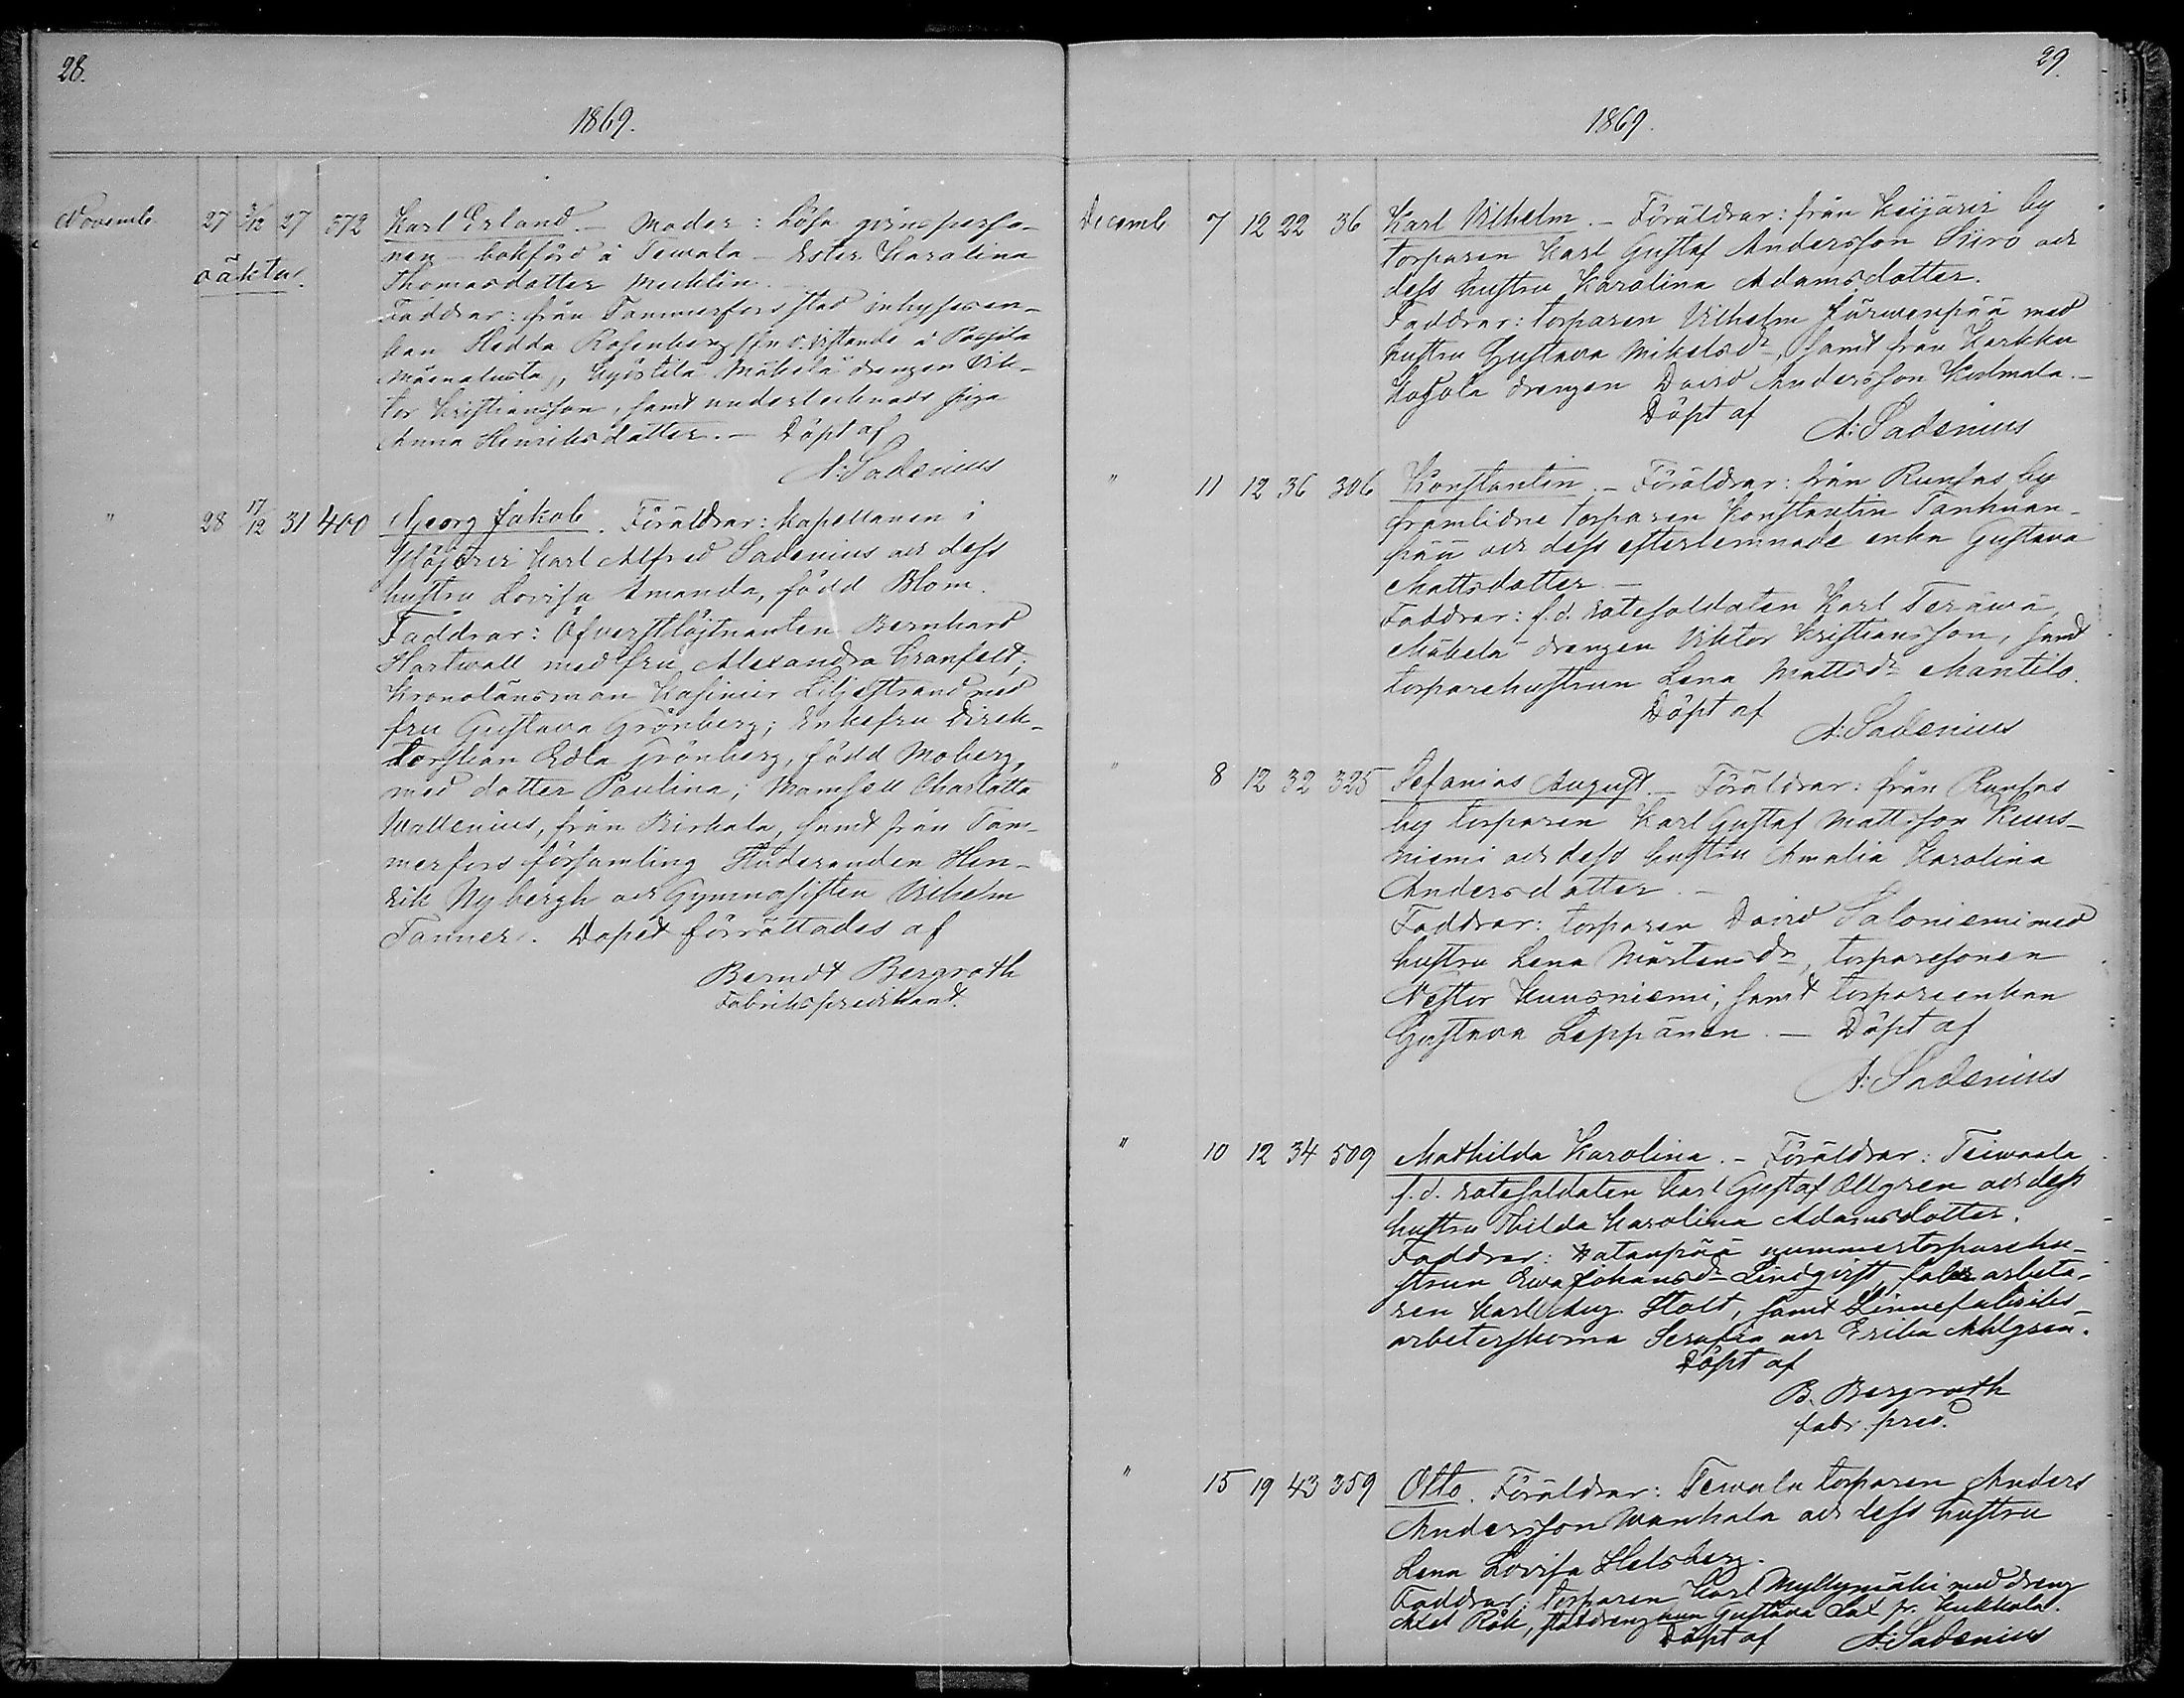 28.
1869.
Novemb. 27 3/12 27 372 Karl Erland. – Moder: Lösa qvinsperso-
nen – bokförd å Teiwala – Ester Karolina
oäkta. Thomasdotter Mecklin. –
Faddrar: från Tammerfors stad inhyseen-
kan Hedda Rosenberg
, Kyöstilä Mäkelä drengen Vik-
tor Kristiansson, samt undertecknads piga
Anna Henriksdotter. – Döpt af
A: Sadenius
" 28 17/12 31 400 Georg Jakob. Föräldrar: Kapellanen i
Ylöjärvi Karl Alfred Sadenius och dess
hustru Lovisa Amanda, född Blom.
Faddrar: Öfverstlöjtnanten Bernhard
Hartwall med fru Alexandra Granfelt;
Kronolänsman Kasimir Liljestrand med
fru Gustava Grönberg; Enkefru Direk-
torskan Edla Grönberg, född Moberg,
med dotter Paulina; Mamsell Charlotta
Wallenius, från Birkala, samt från Tam-
merfors församling Studeranden Hen-
rik Nybergh och Gymnasisten Vilhelm
Tanner. Dopet förrättades af
Berndt Bergroth
Fabrikspredikant.
29.
1869.
Decemb. 7 12 22 36 Karl Vilhelm. – Föräldrar: från Keijärvi by
torparen Karl Gustaf Andersson Siiro och
dess hustru Karolina Adamsdotter.
Faddrar: torparen Vilhelm Järwenpää med
hustru Gustava Mikelsdr, samt från Karkku
drengen David Andersson Kulmala. –
Döpt af
A: Sadenius
" 11 12 36 306 Konstantin. – Föräldrar: från Runsas by
framlidne torparen Konstantin Tanhuan-
pää och dess efterlemnade enka Gustava
Mattsdotter. –
Faddrar: f.d. rotesoldaten Karl Teräwä,
Mäkelä drengen Viktor Kristiansson, samt
torparehustrun Lena Mattsdr Mantila.
Döpt af
A: Sadenius
" 8 12 32 325 Sefanias August. – Föräldrar: från Runsas
by torparen Karl Gustaf Mattsson Kuus-
niemi och dess hustru Amalia Karolina
Andersdotter. –
Faddrar: torparen David Saloniemi med
hustru Lena Mårtensdr, torparesonen
Nestor Kuusniemi, samt torpareenkan
Gustava Leppänen. – Döpt af
A: Sadenius
" 10 12 34 509 Mathilda Karolina. – Föräldrar: Teiwaala
f.d. rotesoldaten Karl Gustaf Ollgren och dess
hustru Hilda Karolina Adamsdotter.
Faddrar: Hatanpää nummertorparehu-
strun Ewa Johansdr Lindqvist, fabr. arbeta-
ren Karl Aug. Stolt, samt Linnefabriks-
arbeterskorna Serafia och Erika Ahlgren.
Döpt af
B. Bergroth
fabr. pred.
" 15 19 43 359 Otto. Föräldrar: Teiwala torparen Anders
Andersson Wanhala och dess hustru
Lena Lovisa Helsberg.
Faddrar: torparen Karl Myllymäki med dreng
Axel Råk, statdrengkan Gustava Lax fr. Kukkola.
Döpt af A: Sadenius